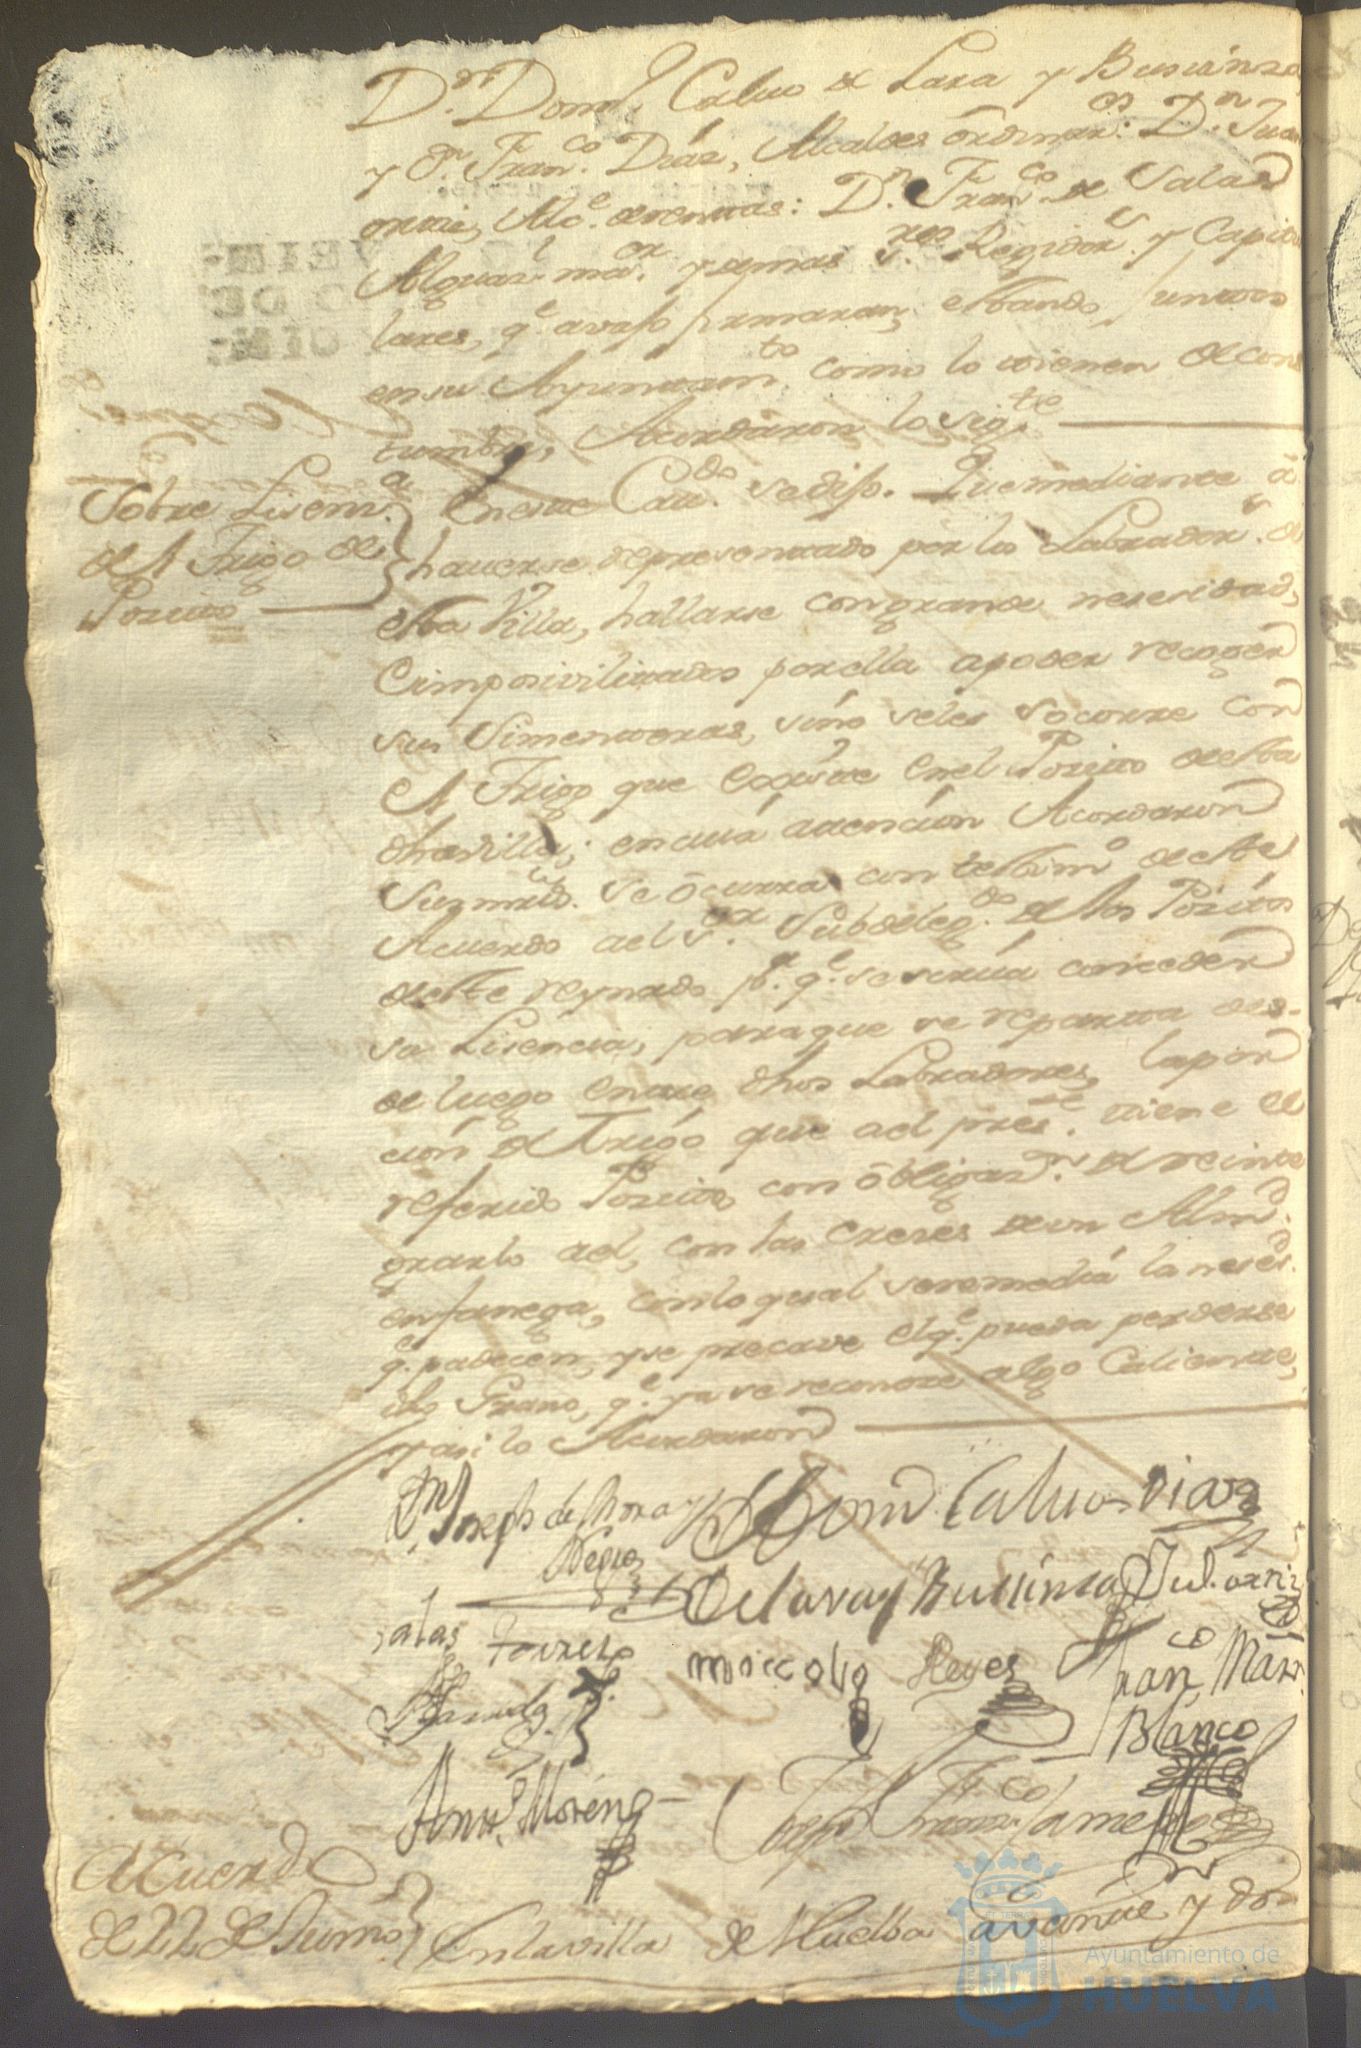 Dn. Domo. Calvo de Lara y Bussinza,
y Dn. Franco. Diaz, Alcaldes ordinar.os: Dn. Juan
Alguazl. mor. y demas sres. Regidors. y Capitu
lares, qe. avajo firmaran, estando juntos
en su Ayuntamto. como lo tienen de cos
tumbre, Acordaron lo sigte.
Sobre Lisenza.
del Trigo del
Posito
En este Cavdo. se dijo. Que mediante á
haverse representado por los Labradors. de
esta Villa, hallarse con grande nesesidad,
e imposivilitados por ella a poder recoger
sus Simenteras, sino se les socorre con
el Trigo que existe en el Posito de esta
dha villa; en cuia atencion Acordaron
sus mrds. se ocurra con testimo. de este
Acuerdo al sor. Subdelegdo. de los Positos
de este reynado pr. qe. se sirva conceder
su Lisencia, para que se reparta des-
de luego entre dhos Labradores, la por
cion de Trigo que al preste. tiene el
referido Posito, con obligazn. de reinte
grarlo a el, con las Creses de un Almd.
en fanega, con lo qual se remedia la nesesd.
qe. padecen, y se precave el qe. pueda perderse
dho Grano, qe. ya se reconose algo Caliente,
y asi lo Acordaron
Dn. Joseph de Mora y
Negro
Domo. Calvo Diaz
De Lara y Bussinza
Salas Torres
Reyes
Franco. Marn.
Blanco
Anto. Moreno
Acuerdo
de 22 de Junio
En la villa de Huelba a veinte y dos
Ayuntamiento de
HUELVA